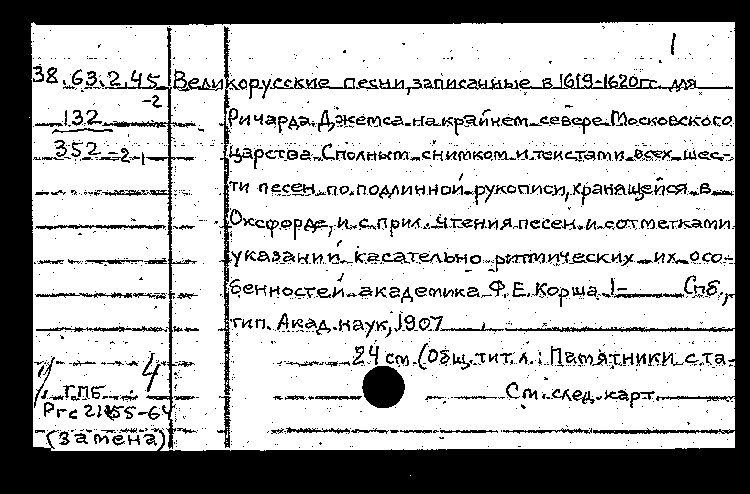 1
38.63.2.45 Великорусские песни, записанные в 1619-1620гг. для
-2
132 Ричарда Джемса на крайнем севере Московского
352-2 1 царства. С полным снимком и текстами всех шес-
ти песен по подлинной рукописи, хранящейся в
Оксфорде, и с прил. чтения песен и с отметками
указаний касательно ритмических их осо-
бенностей академика Ф.Е. Корша 1- Спб.,
тип. Акад. наук, 1907
24 см. (Общ. тит. л.: Памятники ста-
4
ГПБ См. след. карт.
(Замена)